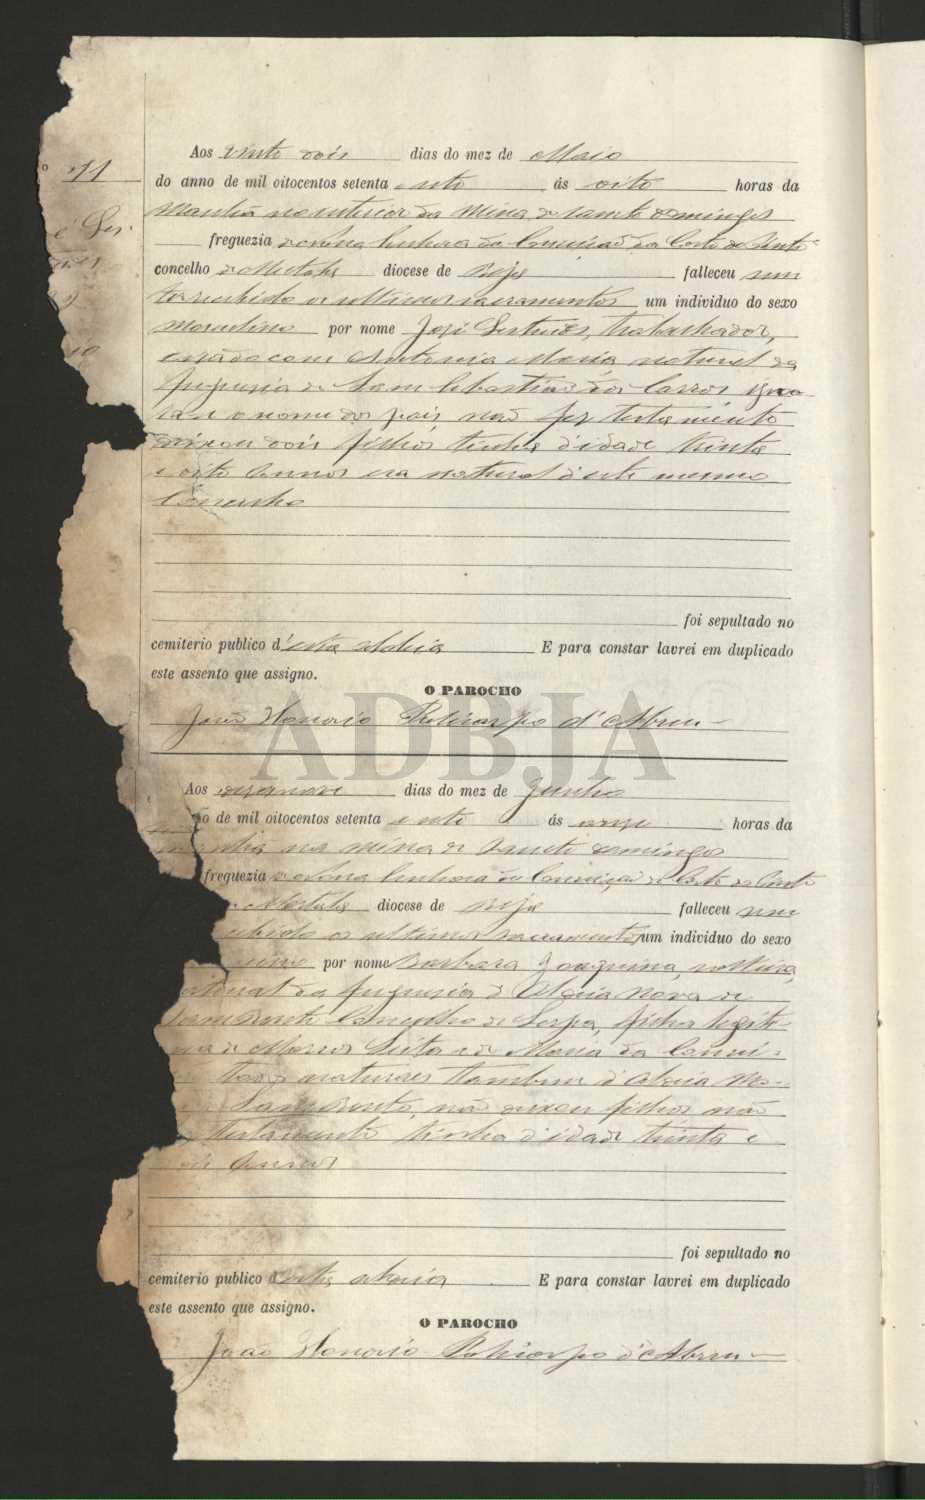 Nº 11
Aos vinte dois dias do mez de Maio
do anno de mil oitocentos setenta e oito ás oito horas da
manhã no interior da Mina de Santo Domingos
freguezia de Nossa Senhora da Conceição da Corte do Pinto
concelho de Mertola diocese de Beja falleceu sem
ter recebido os ultimos sacramentos um individuo do sexo
masculino por nome José Gertrudes, trabalhador,
casado com Antonia Maria natural da
freguezia de Sam Sebastião dos Carros igno-
ram o nome dos pais, não fez testamento
deixou dois filhos tinha d'idade trinta
e oito annos era natural d'este mesmo
Concelho
foi sepultado no
cemiterio publico d'esta aldeia E para constar lavrei em duplicado
este assento que assigno.
O PAROCHO
João Honorio Policarpo d'Abreu
ADBJA
Aos desanove dias do mez de Junho
anno de mil oitocentos setenta e oito ás onze horas da
manhã na Mina de Santo Domingos
freguezia de Nossa Senhora da Conceição da Corte do Pinto
de Mertola diocese de Beja falleceu sem
recebido os ultimos sacramentos um individuo do sexo
por nome Barbara Joaquina, solteira,
natural da freguezia d'Aldeia Nova de
Sam Bento Concelho de Serpa, filha legiti-
ma de Marcos Leita e de Maria da Concei-
ção naturaes tambem d'Aldeia No-
va Sam Bento, não deixou filhos não
testamento tinha d'idade trinta e
annos
foi sepultado no
cemiterio publico d'esta aldeia E para constar lavrei em duplicado
este assento que assigno.
O PAROCHO
João Honorio Policarpo d'Abreu